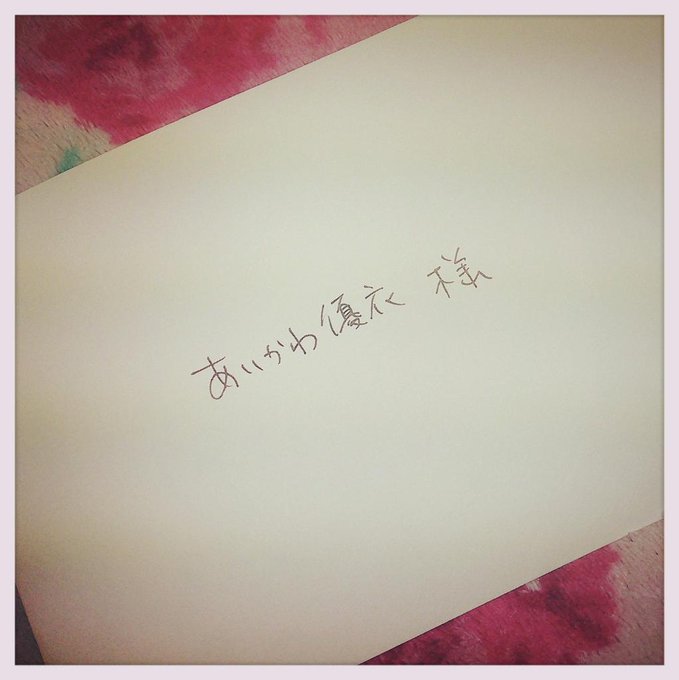 あいかわ優衣 様